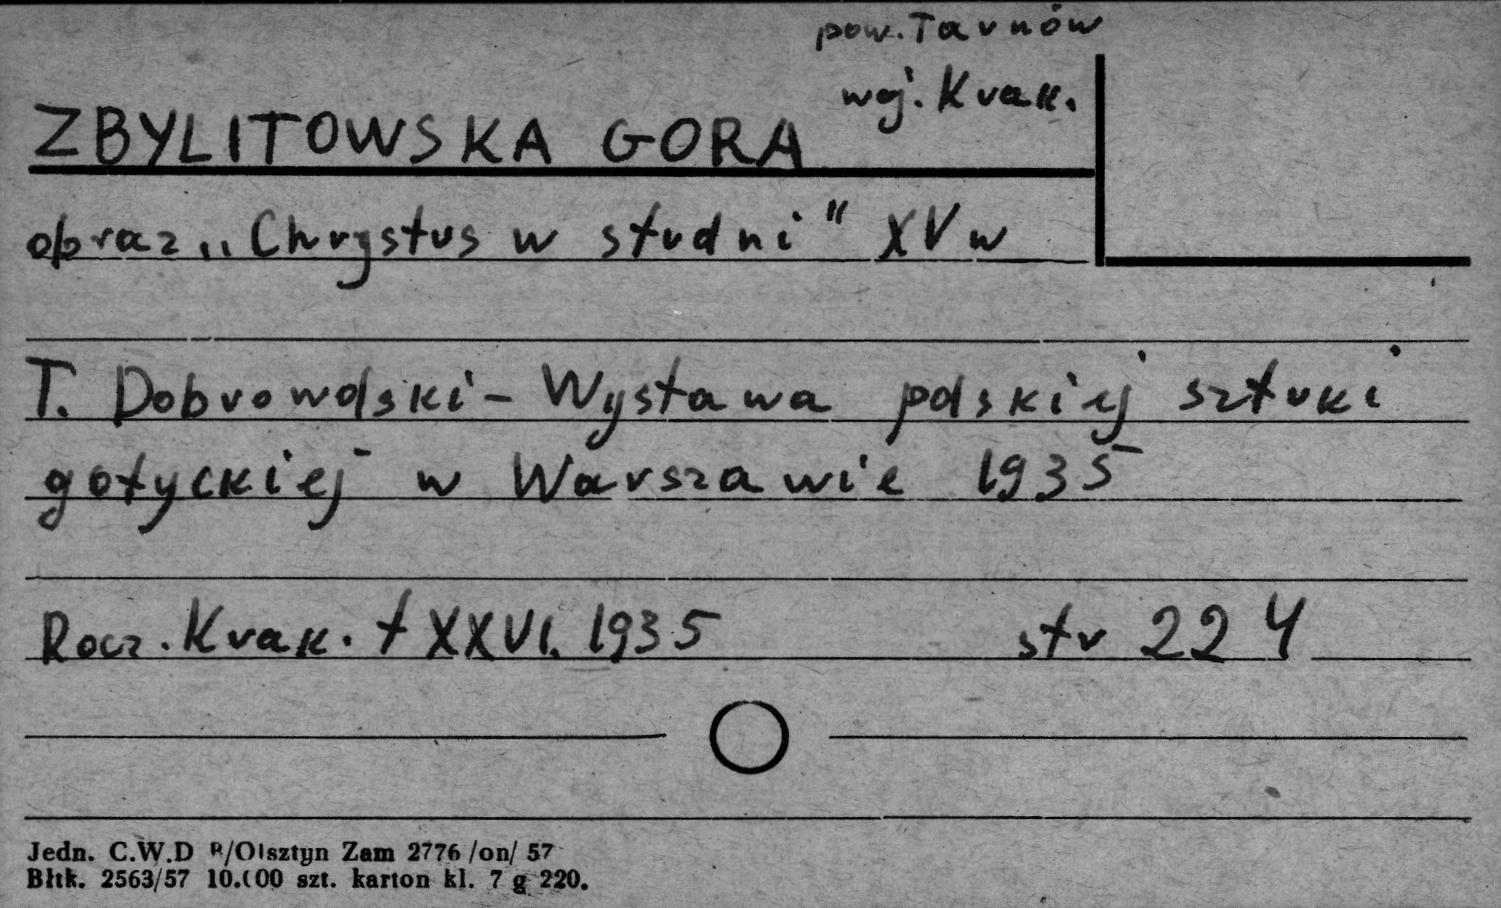 pow. Tarnów
woj. Krak.
ZBYLITOWSKA GORA
obraz „Chrystus w studni" XV w
T. Dobrowolski - Wystawa polskiej sztuki
gotyckiej w Warszawie 1935
Rocz. Krak. t XXVI. 1935 str 224
Jedn. C.W.D P/Olsztyn Zam 2776 /on/ 57
Błtk. 2563/57 10.000 szt. karton kl. 7 g 220.